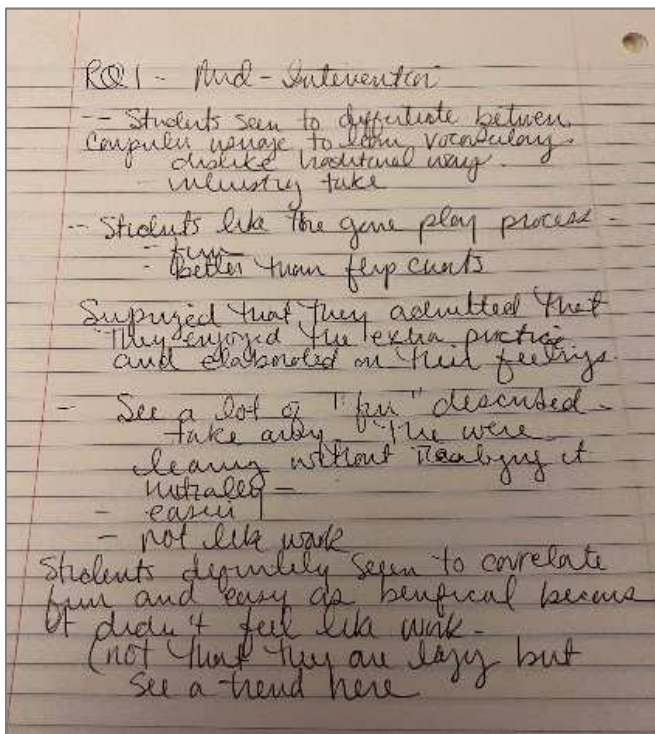 RQ1 - Mid-Intevention
-- Students seem to differtiate between
Computer usage to learn vocabulary.
dislike traditional way.
- industry take
-- Students like the game play process -
- fun
- better than flip charts
Suprized that they admitted that
they enjoyed the extra practice
and elaborated on their feelings.
- See a lot of "fun" described -
take away - The were
learning without realizing it
initially -
- easier
- not like work
Students definitely seem to correlate
fun and easy as benifical becaus
it didn't feel like work -
(not that they are lazy but
see a trend here